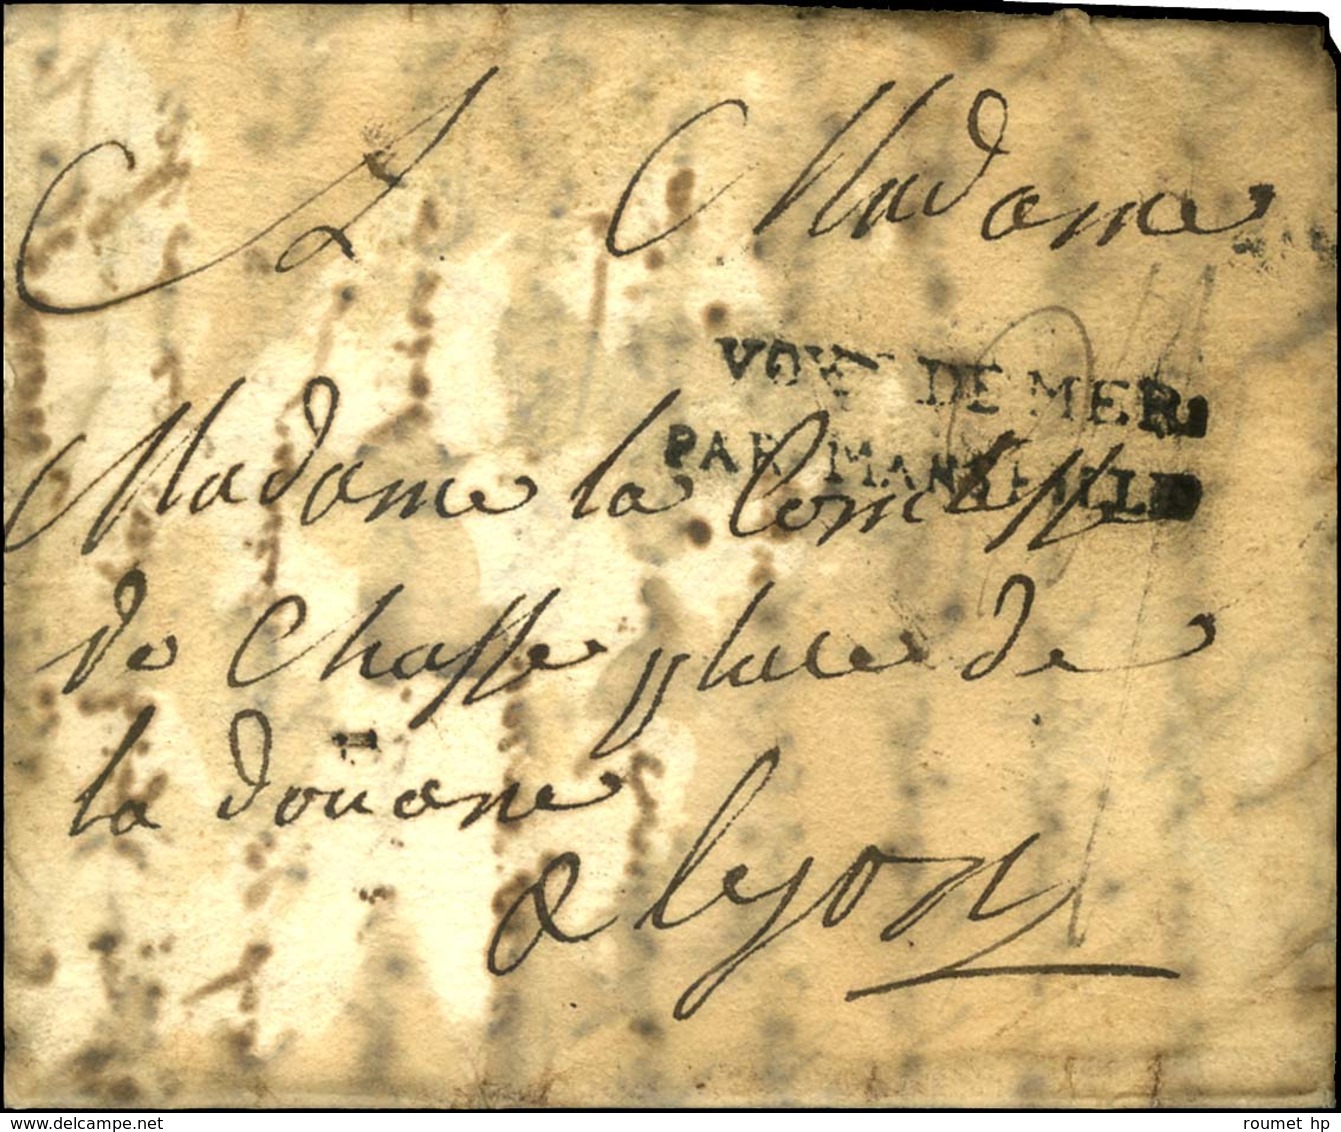 A Madame
VOYE DE MER
PAR MARSEILLE
Madame la Comtesse
de Chasse place de
la doüane
a lyon
roumet hp